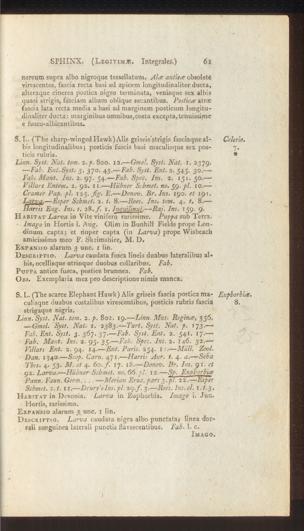 SPHINX. (Legitimæ Integrales.) 61
nereum supra albo nigroque tessellatum. Alæ anticæ obsolete
virescentes, fascia recta basi ad apicem longitudinaliter ducta,
alteraque cinerea postica nigro terminata, veniisque sex albis
quasi strigis, fasciam albam oblique secantibus. Posticæ atræ
fascia lata recta media a basi ad marginem posticum longitu-
dinaliter ducta: marginibus omnibus, costa excepta, tenuissime
e fusco-albicantibus.
S. L. (The sharp-winged Hawk) Alis griseis strigis fuscisque al-
bis longitudinalibus; posticis fascia basi maculisque sex pos-
ticis rubris.
Celerio.
7.
Linn. Syst. Nat. tom. 2. p. 800. 12.—Gmel. Syst. Nat. 1. 2379.
—Fab. Ent. Syst. 3. 370. 43.—Fab. Syst. Ent. 2. 545. 30.—
Fab. Mant. Ins. 2. 97. 54.—Fab. Spec. Ins. 2. 151. 50.—
Villars Entom. 2. 90. 11.—Hübner Schmet. no. 59. pl. 10.—
Cramer Pap. pl. 125. fig. E.—Don. Br. Ins. 190. et 191.
Larva.—Esper Schmet. 2. t. 8.—Roes. Ins. tom. 4. t. 8.—
Harris Eng. Ins. t. 28. f. 1.
HABITAT Larva in Vite vinifera rarissime. Puppa sub Terra.
Imago in Hortis i. Aug. Olim in Bunhill Fields prope Lon-
dinum capta; et nuper capta (in Larva) prope Wisbeach
amicissimo meo F. Skrimshire, M. D.
EXPANSIO alarum 3 unc. 1 lin.
DESCRIPTIO. Larva caudata fusca lineis duabus lateralibus al-
bis, ocellisque utrinque duobus collaribus. Fab.
PUPPA antice fusca, postice brunnea. Fab.
OBS. Exemplaria mea pro descriptione nimis manca.
S. L. (The scarce Elephant Hawk) Alis griseis fascia postica ma-
culisque duabus costalibus virescentibus, posticis rubris fascia
strigaque nigris.
Euphorbiæ.
8.
Linn. Syst. Nat. tom. 2. p. 802. 19.—Linn. Mus. Reginæ, 356.
—Gmel. Syst. Nat. 1. 2383.—Turt. Syst. Nat. p. 173.—
Fab. Ent. Syst. 3. 367. 37.—Fab. Syst. Ent. 2. 541. 17.—
Fab. Mant. Ins. 2. 95. 35.—Fab. Spec. Ins. 2. 146. 32.—
Villars Ent. 2. 94. 14.—Ent. Paris. 254. 11.—Müll. Zool.
Dan. 1342.—Scop. Carn. 471.—Harris Aur. t. 4. a.—Seba
Thes. 4. 53. M. et 4. 60. f. 17. 18.—Donov. Br. Ins. 91. et
92. Larva.—Hübner Schmet. no. 66. pl. 12.—Sp. Euphorbiæ
Panz. Faun. Germ. . . . —Merian Eruc. part 3. pl. 22.—Esper
Schmet. 2. t. 11.—Drury's Ins. pl. 29. f. 3.—Roes. Ins. cl. 1. t. 3.
HABITAT in Devonia. Larva in Euphorbia. Imago i. Jun.
Hortis, rarissima.
EXPANSIO alarum 3 unc. 1 lin.
DESCRIPTIO. Larva caudata nigra albo punctata; linea dor-
sali sanguinea laterali punctis flavescentibus. Fab. l. c.
IMAGO.